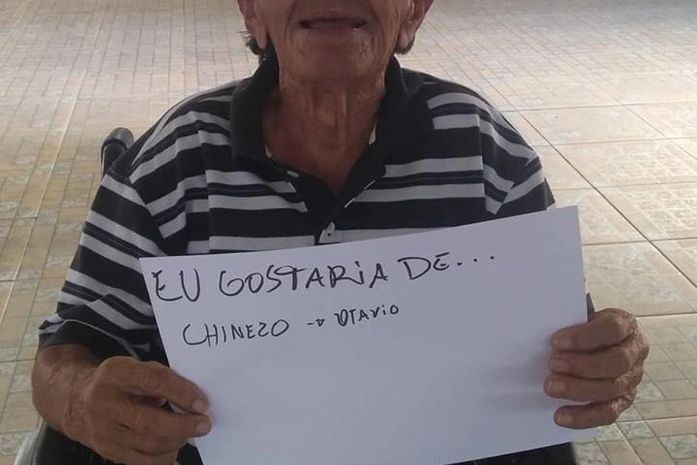 EU GOSTARIA DE...
CHINEZO → OTAVIO